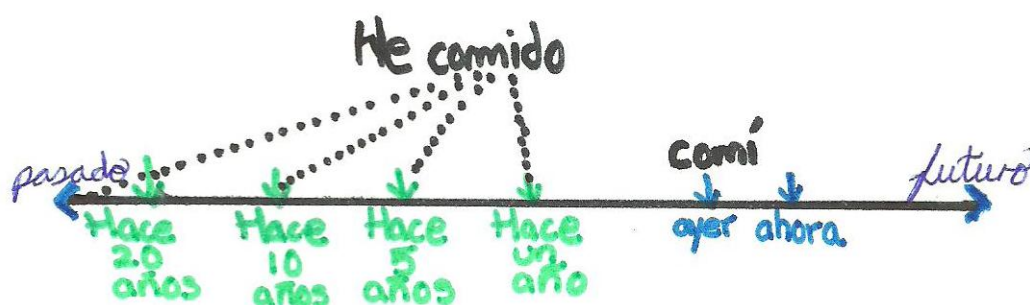 He comido
comí
pasado
futuro
Hace
20
años
Hace
10
años
Hace
5
años
Hace
un
año
ayer
ahora